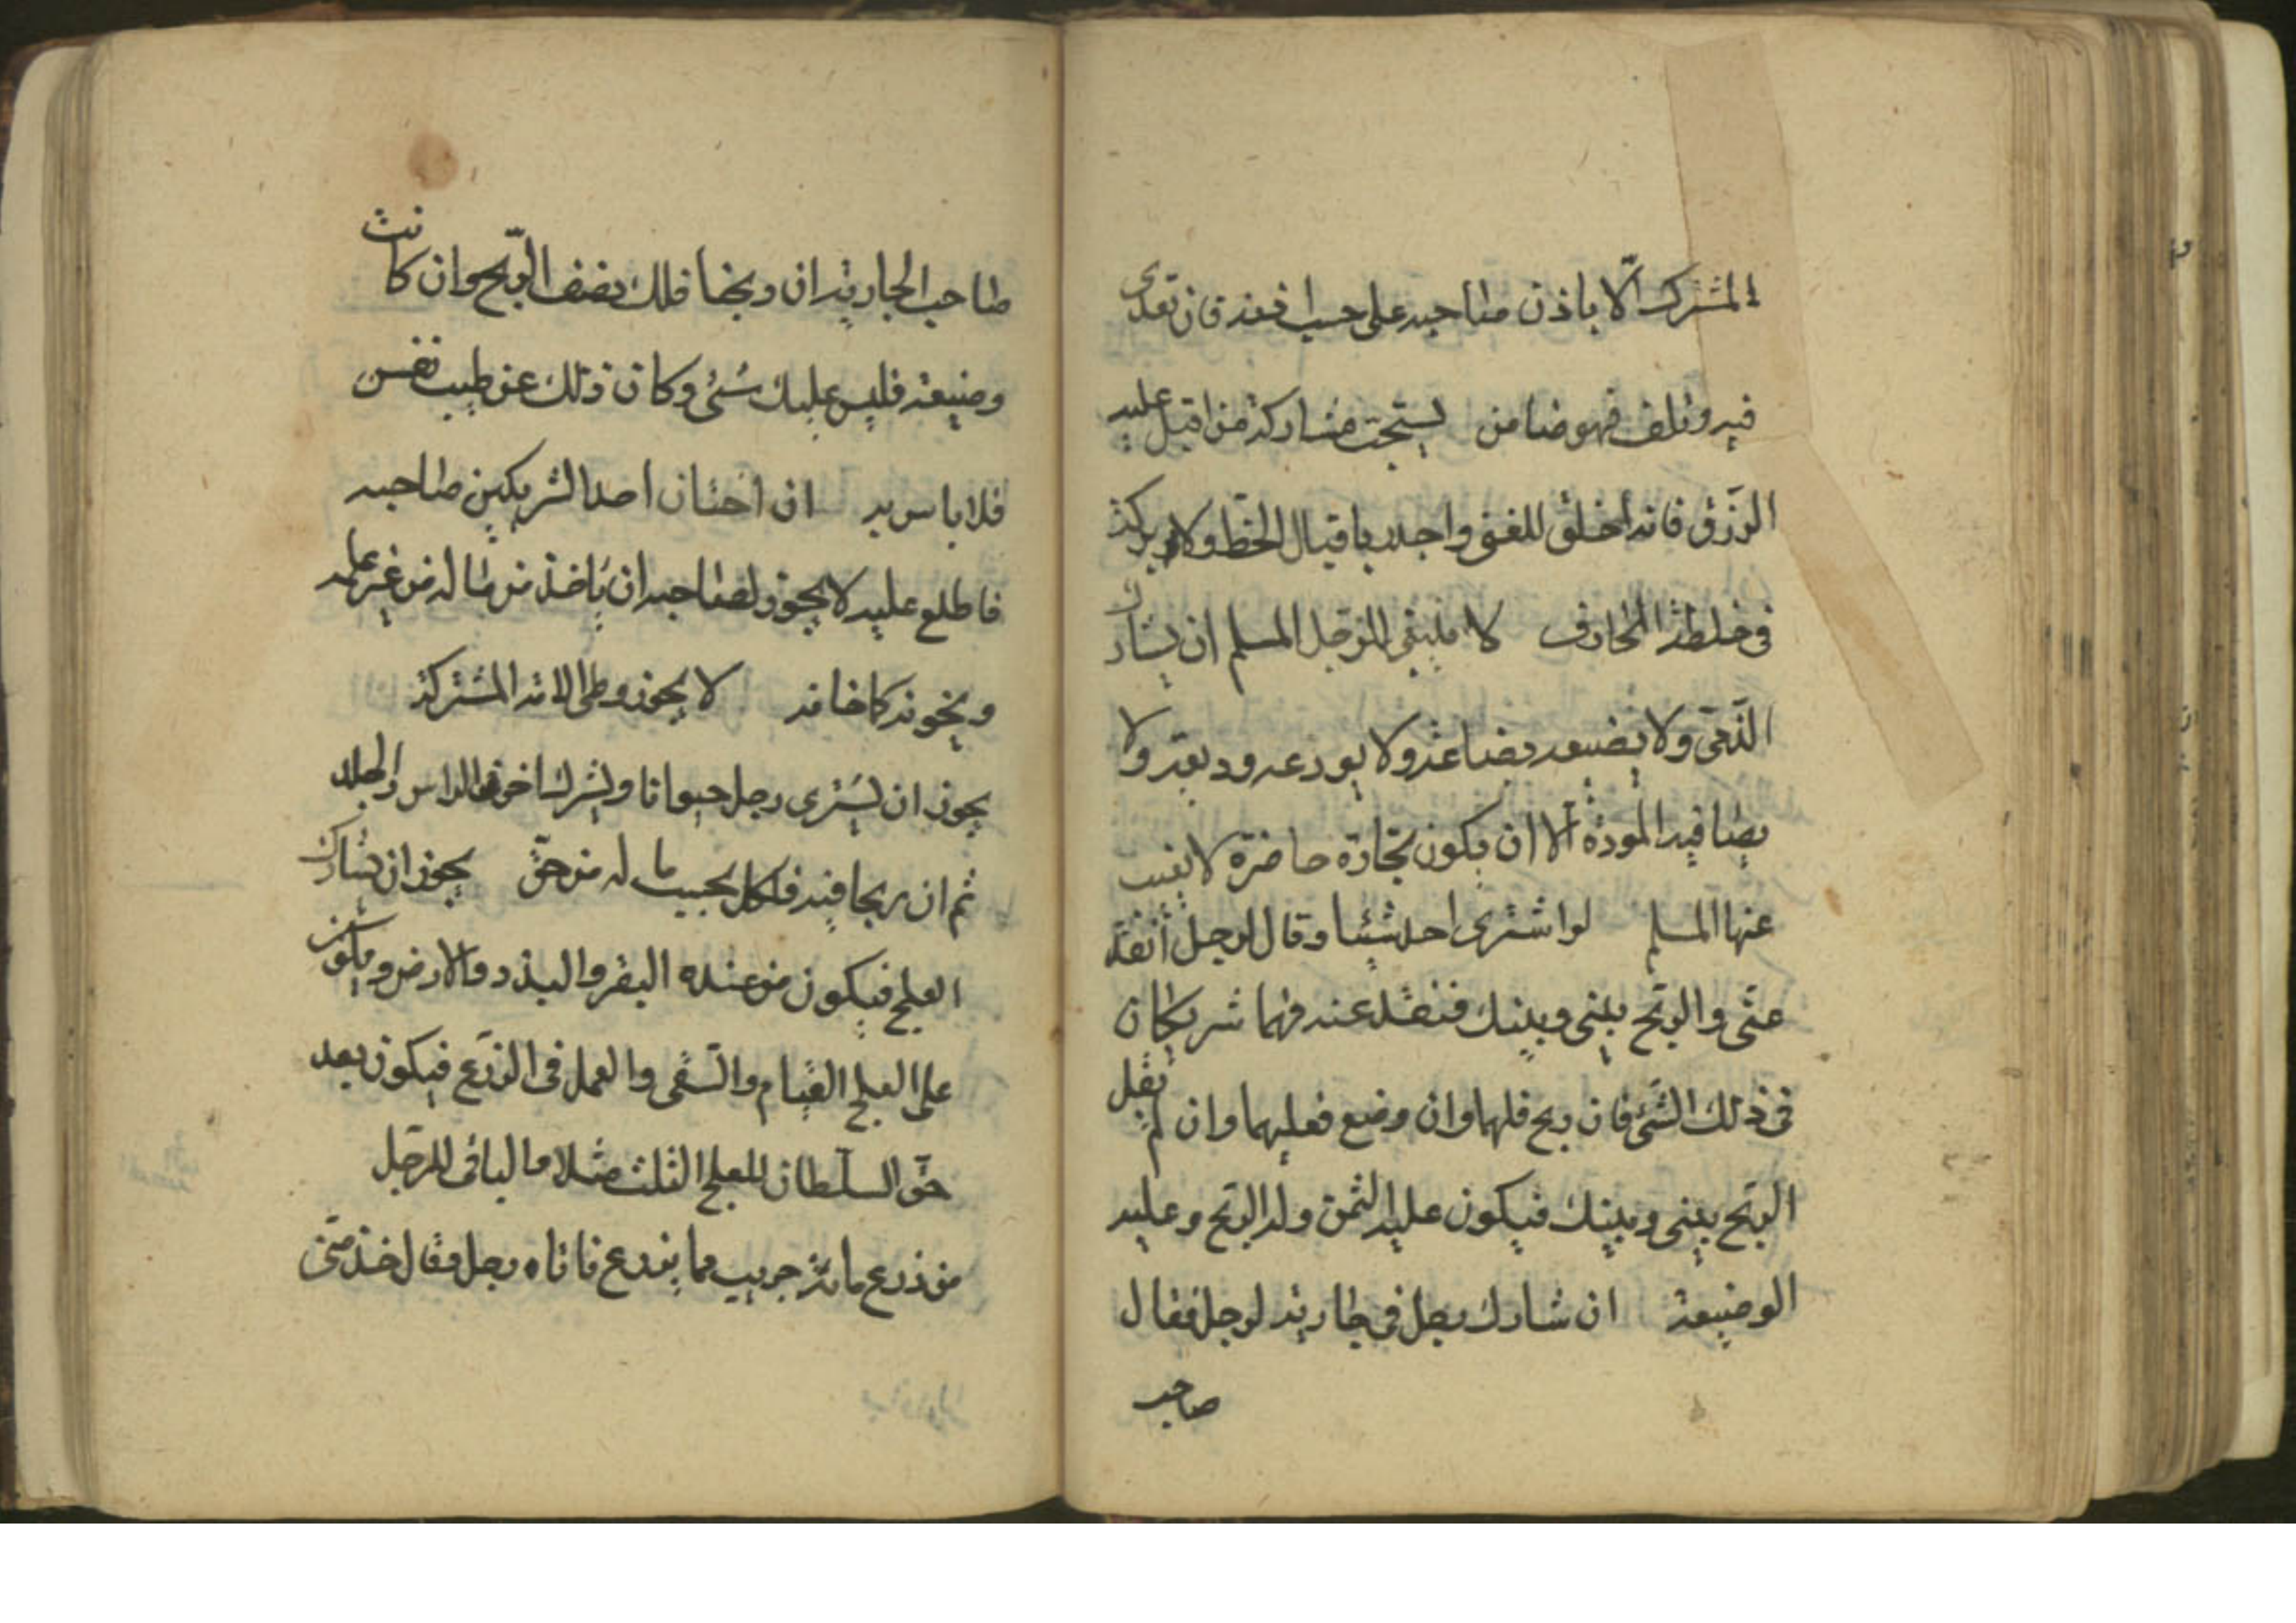 المشترك الّا باذن صاحبه على حسب اذنه فان تعدى
فيه وتلف فهو ضامن يستحب مشاركة من اقبل عليه
الرّزق فانه اخلق للغنى واجدر باقبال الحظّ ولا بركة
فى خلطة المحارف لا ينبغى للرّجل المسلم ان يشارك
الذّمى ولا يضبعه بضاعة ولا يودعه وديعة ولا
يصافيه المودة الّا ان يكون تجارة حاضرة لا يغيب
عنها المسلم لو اشترى احد شيئا وقال لرجل أنقد
عنّى والرّبح بينى وبينك فنقد عنه فهما شريكان
فى ذلك الشّئ فان ربح فلهما وان وضع فعليهما وان لم يقل
الرّبح بينى وبينك فيكون عليه الثمن وله الرّبح وعليه
الوضيعة ان شارك رجل فى جارية لرجل فقال
صاحب
صاحب الجارية ان ربحنا فلك نصف الرّبح وان كانت
وضيعة فليس عليك شئ وكان ذلك عن طيب نفس
فلا باس به ان اختان احد الشريكين صاحبه
فاطلع عليه لا يجوز لصاحبه ان ياخذ من ماله من غير علمه
ويخونه كما خانه لا يجوز وطى الامة المشتركة
يجوز ان يشترى رجل حيوانا ويشرك اخر فى الراس والجلد
ثم ان ربحا فيه فلكل بحسب ما له من حقّ يجوز ان يشارك
العلج فيكون من عنده البقر والبذر والارض ويكون
على العلج القيام والسّقى والعمل فى الزّرع فيكون بعد
حقّ السلطان للعلج الثلث مثلا والباقى للرّجل
من زرع مائة جريب مما يزرع فاتاه رجل وقال خذ منّى